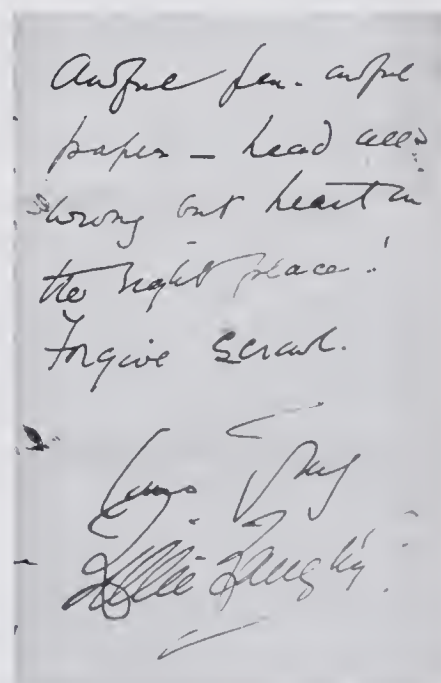 Awful pen - awful
paper - head all
wrong but heart in
the right place!
Forgive Scrawl.
Yours
Lillie Langtry